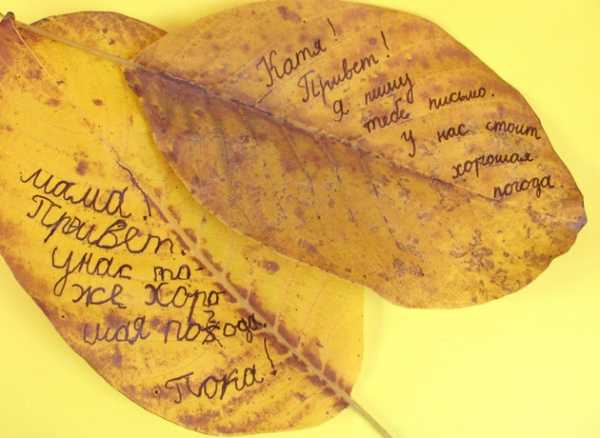 Катя!
Привет!
Я пишу
тебе письмо.
у нас стоит
хорошая
погода.
мама!
Привет!
унас то-
же хоро-
шая погода.
Пока!